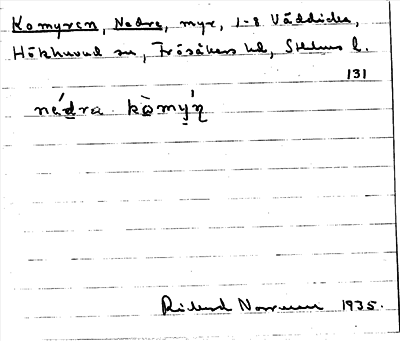 Komyren, Nedre, myr, 1-8 Väddicka,
Hökhuvud sn, Frösåkers hd, Sthlms l.
131
né̱dra kò̱mý̱ŋ
Rickard Norrman 1935.